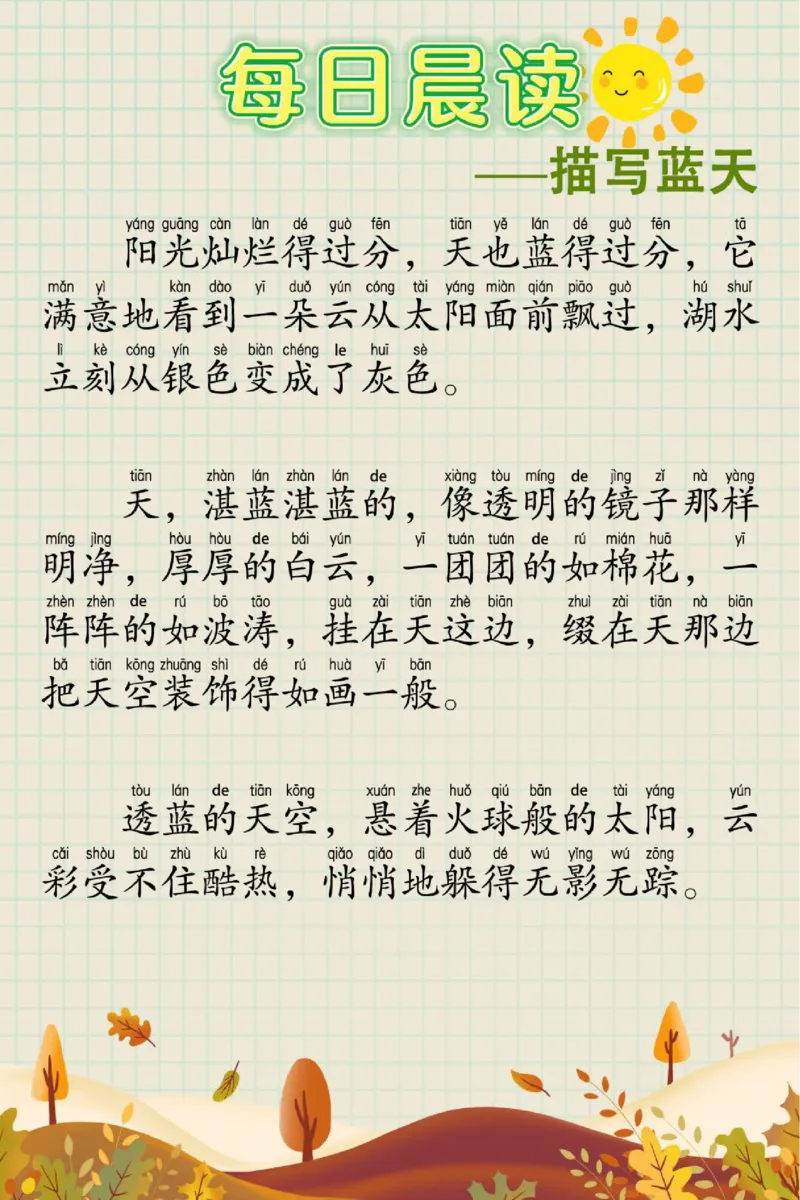 每日晨读
——描写蓝天
yáng guāng càn làn dé guò fēn tiān yě lán dé guò fēn tā
阳光灿烂得过分，天也蓝得过分，它
mǎn yì kàn dào yī duǒ yún cóng tài yáng miàn qián piāo guò hú shuǐ
满意地看到一朵云从太阳面前飘过，湖水
lì kè cóng yín sè biàn chéng le huī sè
立刻从银色变成了灰色。
tiān zhàn lán zhàn lán de xiàng tòu míng de jìng zǐ nà yàng
天，湛蓝湛蓝的，像透明的镜子那样
míng jìng hòu hòu de bái yún yī tuán tuán de rú mián huā yī
明净，厚厚的白云，一团团的如棉花，一
zhèn zhèn de rú bō tāo guà zài tiān zhè biān zhuì zài tiān nà biān
阵阵的如波涛，挂在天这边，缀在天那边
bǎ tiān kōng zhuāng shì dé rú huà yī bān
把天空装饰得如画一般。
tòu lán de tiān kōng xuán zhe huǒ qiú bān de tài yáng yún
透蓝的天空，悬着火球般的太阳，云
cǎi shòu bù zhù kù rè qiǎo qiǎo dì duǒ dé wú yǐng wú zōng
彩受不住酷热，悄悄地躲得无影无踪。